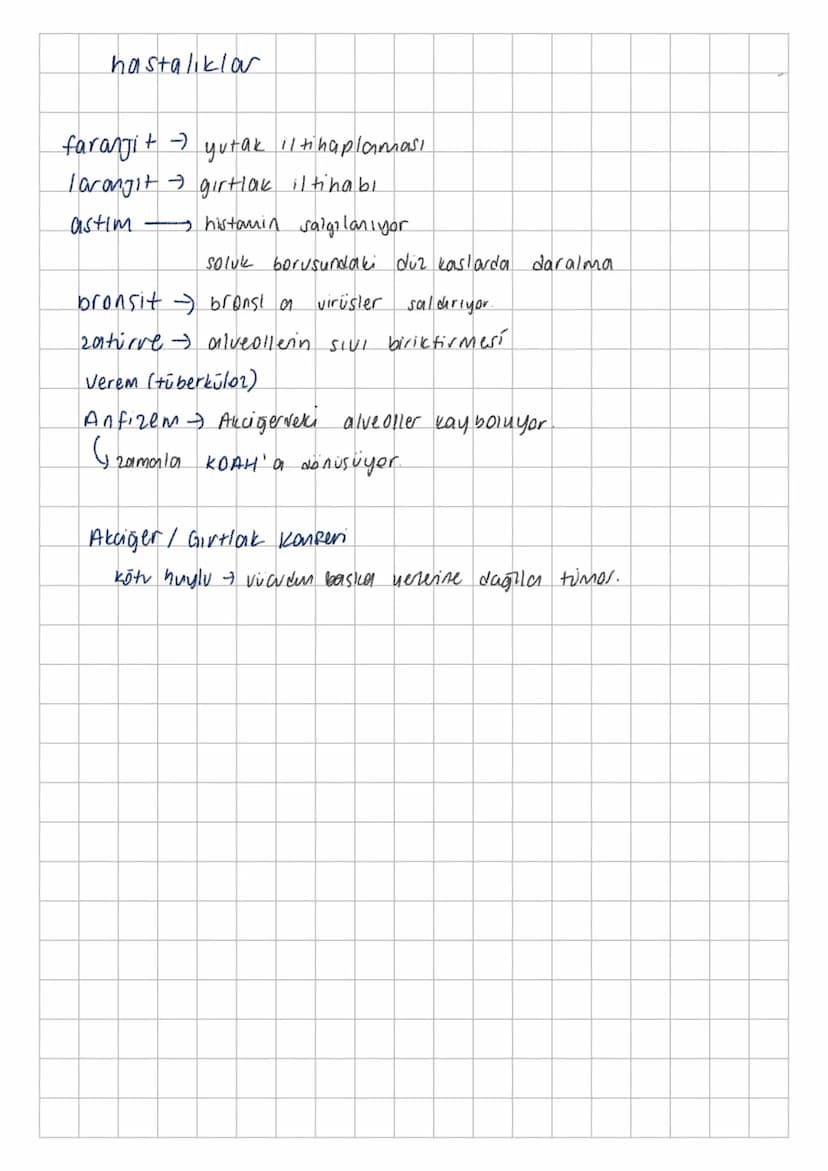 hastalıklar
faranjit → yutak iltihaplanması
laranjit → gırtlak iltihabı
astım → histamin salgılanıyor
soluk borusundaki düz kaslarda daralma
bronşit → bronşl a virüsler saldırıyor.
zatürre → alveollerin sıvı biriktirmesi
Verem (tüberküloz)
Anfizem → Akciğerdeki alveoller kayboluyor.
↳ zamanla KOAH'a dönüşüyor.
Akciğer / Gırtlak Kanseri
kötü huylu → vücudun başka yerlerine dağılan tümör.